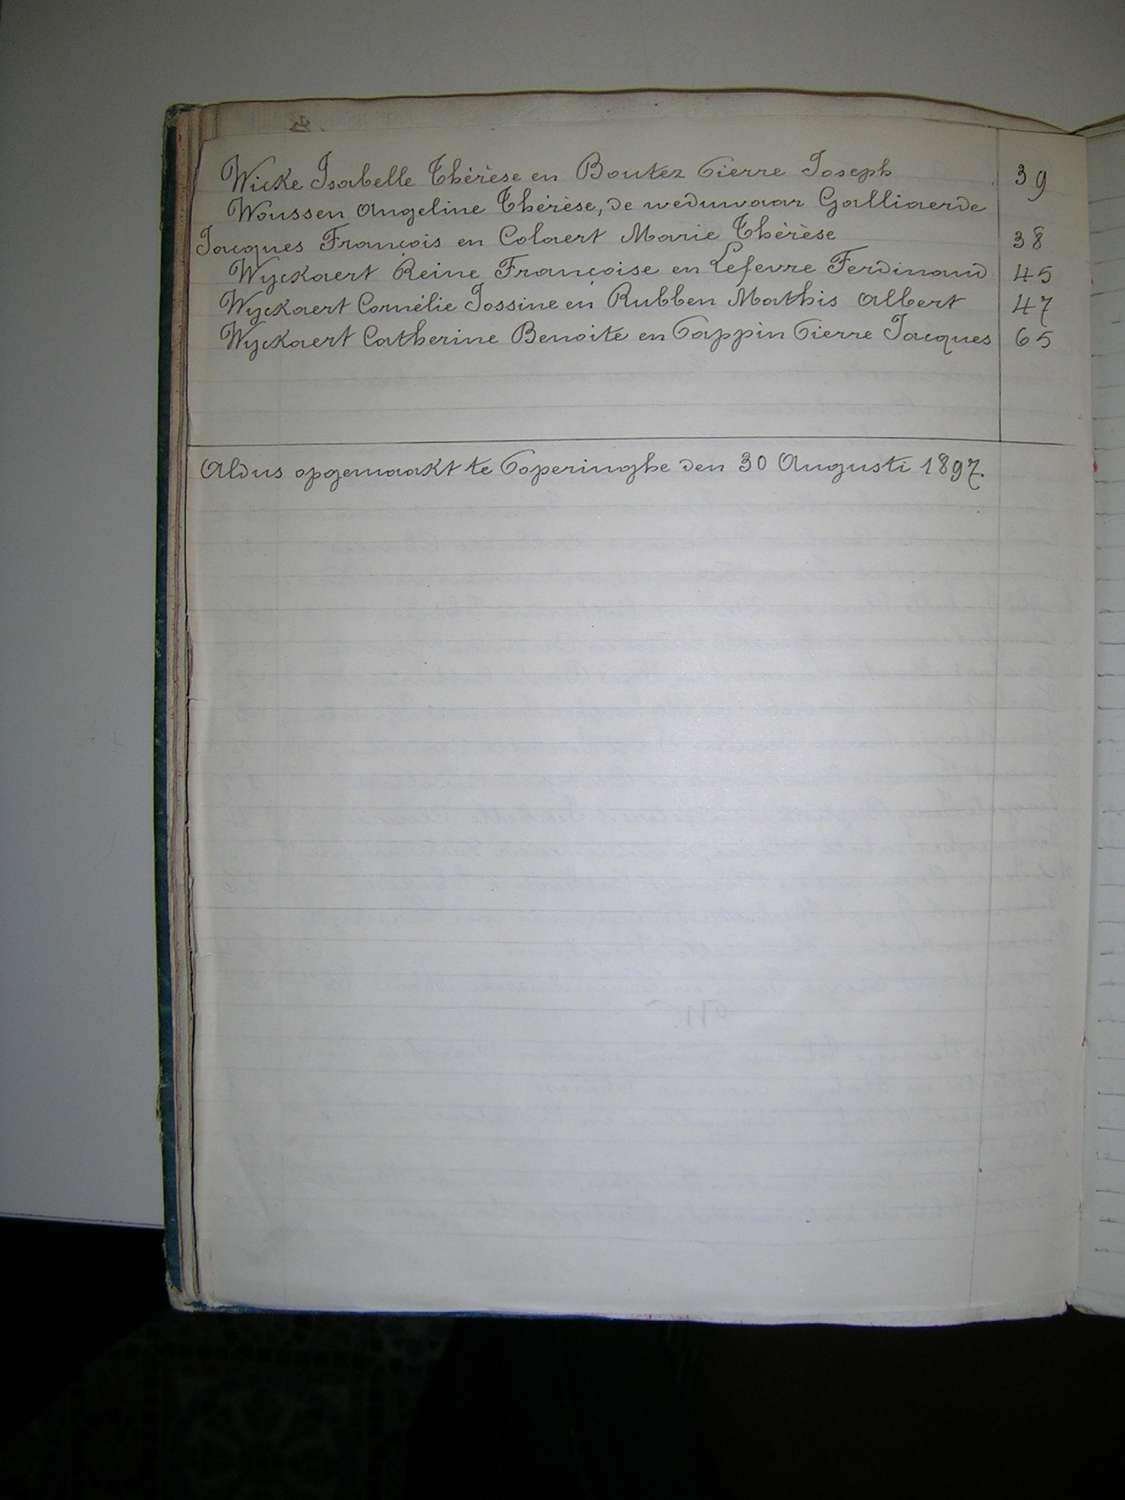 Wicke Isabelle Thérèse en Boutez Pierre Joseph 39
Woussen Angeline Thérèse, de weduwaar Galliaerde
Jacques François en Colaert Marie Thérèse 38
Wyckaert Reine Françoise en Lefevre Ferdinand 45
Wyckaert Cornélie Jossine en Rubben Mathis Albert 47
Wyckaert Catherine Benoite en Pappin Pierre Jacques 65
Aldus opgemaakt te Poperinghe den 30 Augusti 1897.